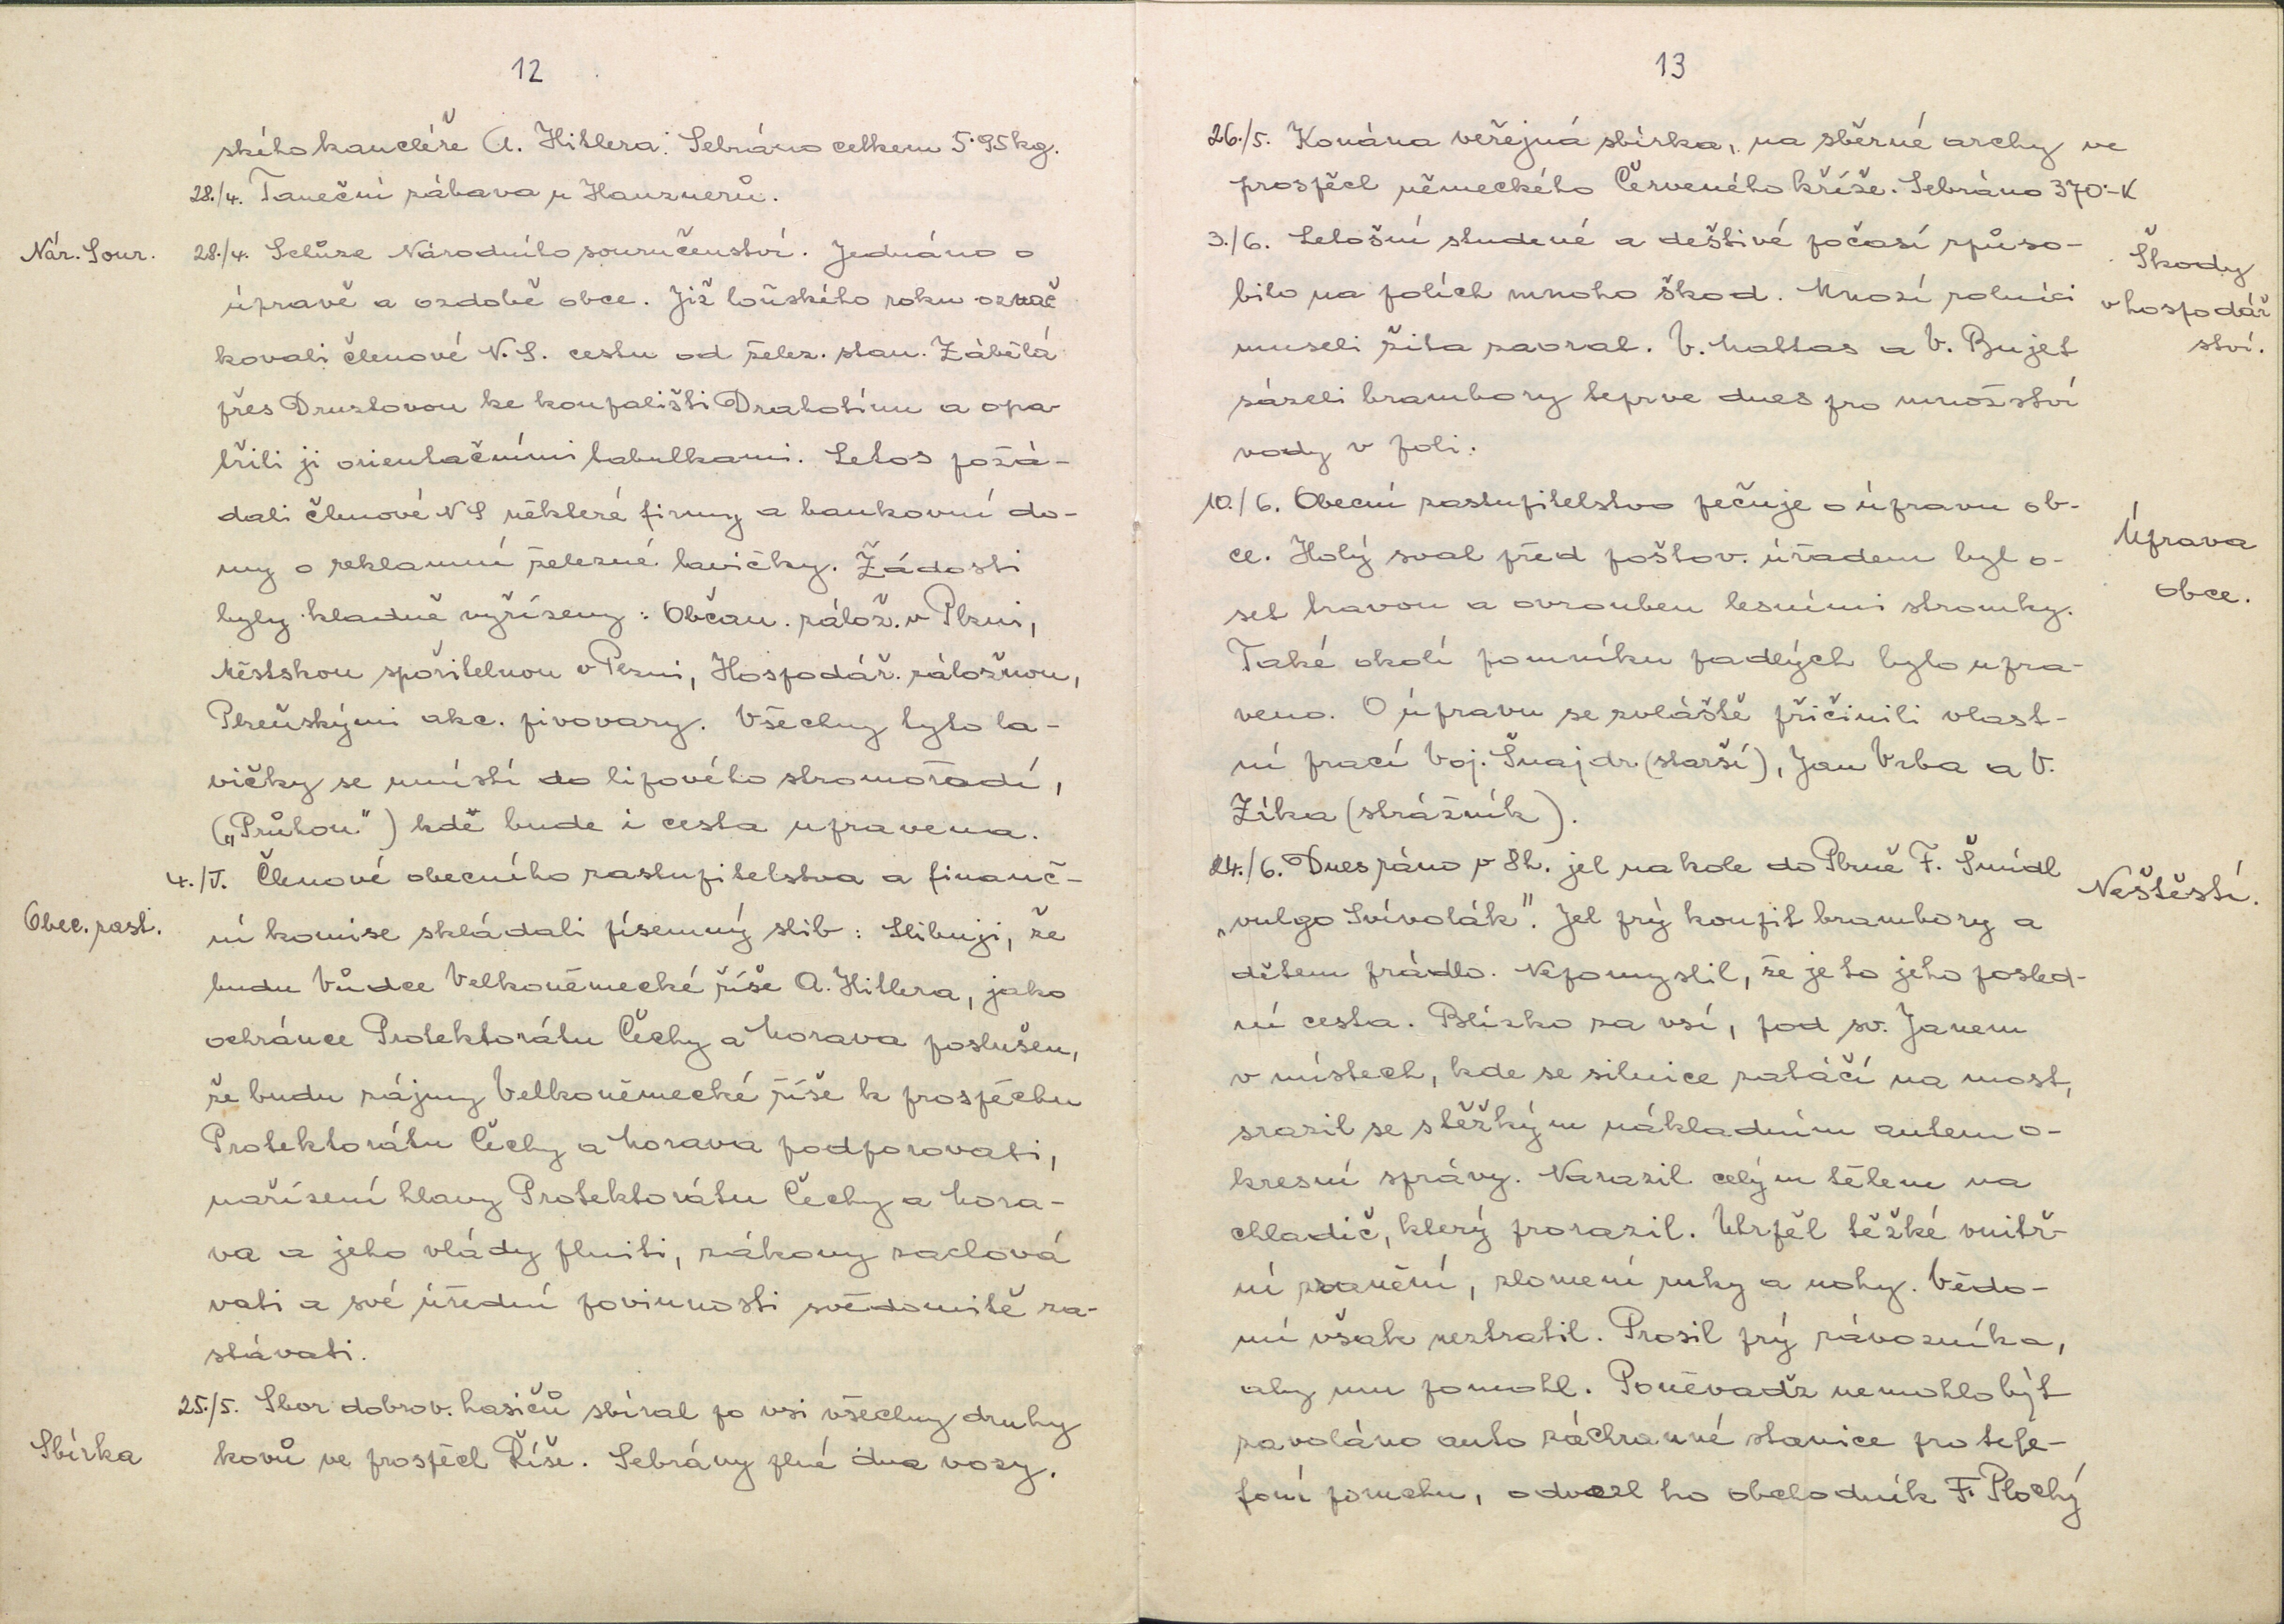 12
ského kancléře A. Hitlera. Sebráno celkem 5·95 kg.
28./4. Taneční zábava u Hauznerů.
Nár. Sour. 28./4. Schůze Národního souručenství. Jednáno o
úpravě a ozdobě obce. Již loňského roku označ
kovali členové N.S. cestu od želez. stan. Zábělá
přes Druztovou ke koupališti Dratotínu a opa-
třili ji orientačními tabulkami. Letos požá-
dali členové NS některé firmy a bankovní do-
my o reklamní železné lavičky. Žádosti
byly kladně vyřízeny: Občan. zálož. v Plzni,
Městskou spořitelnou v Pezni, Hospodář. záložnou,
Plzeňskými akc. pivovary. Všechny tyto la-
vičky se umístí do lipového stromořadí,
(„Průhon") kdě bude i cesta upravena.
4./V. Členové obecního zastupitelstva a finanč-
Obec. zast. ní komise skládali písemný slib: Slibuji, že
budu Vůdce Velkoněmecké říše A. Hitlera, jako
ochránce Protektorátu Čechy a Morava poslušen,
že budu zájmy Velkoněmecké říše k prospěchu
Protektorátu Čechy a Morava podporovati,
nařízení hlavy Protektorátu Čechy a Mora-
va a jeho vlády plniti, zákony zachová
vati a své úřední povinnosti svědomitě za-
stávati.
25./5. Sbor dobrov. hasičů sbíral po vsi všechny druhy
Sbírka kovů ve prospěch Říše. Sebrány plné dva vozy.
13
26./5. Konána veřejná sbírka, na sběrné archy ve
prospěch německého Červeného kříže. Sebráno 370·-K
3./6. Letošní studené a deštivé počasí způso-
Škody
bilo na polích mnoho škod. Mnozí rolníci
v hospodář
museli žita zaorat. V. Mattas a V. Bujet
ství.
sázeli brambory teprve dnes pro množství
vody v poli.
10./6. Obecní zastupitelstvo pečuje o úpravu ob-
Úprava
ce. Holý sval před poštov. úřadem byl o-
obce.
set travou a ovrouben lesními stromky.
Také okolí pomníku padlých bylo upra-
veno. O úpravu se zvláště přičinili vlast-
ní prací Voj. Šnajdr (starší), Jan Vrba a V.
Zíka (strážník).
24./6. Dnes ráno v 8h. jel na kole do Plzně F. Šmídl
Neštěstí.
„vulgo Svívolák". Jel prý koupit brambory a
dětem prádlo. Nepomyslil, že je to jeho posled-
ní cesta. Blízko za vsí, pod sv. Janem
v místech, kde se silnice zatáčí na most,
srazil se stěžkým nákladním autem o-
kresní správy. Narazil celým tělem na
chladič, který prorazil. Utrpěl těžké vnitř-
ní zranění, zlomení ruky a nohy. Vědo-
mí však neztratil. Prosil prý závozníka,
aby mu pomohl. Poněvadž nemohlo být
zavoláno auto záchranné stanice pro tele-
foní poruchu, odvezl ho obchodník F. Plochý